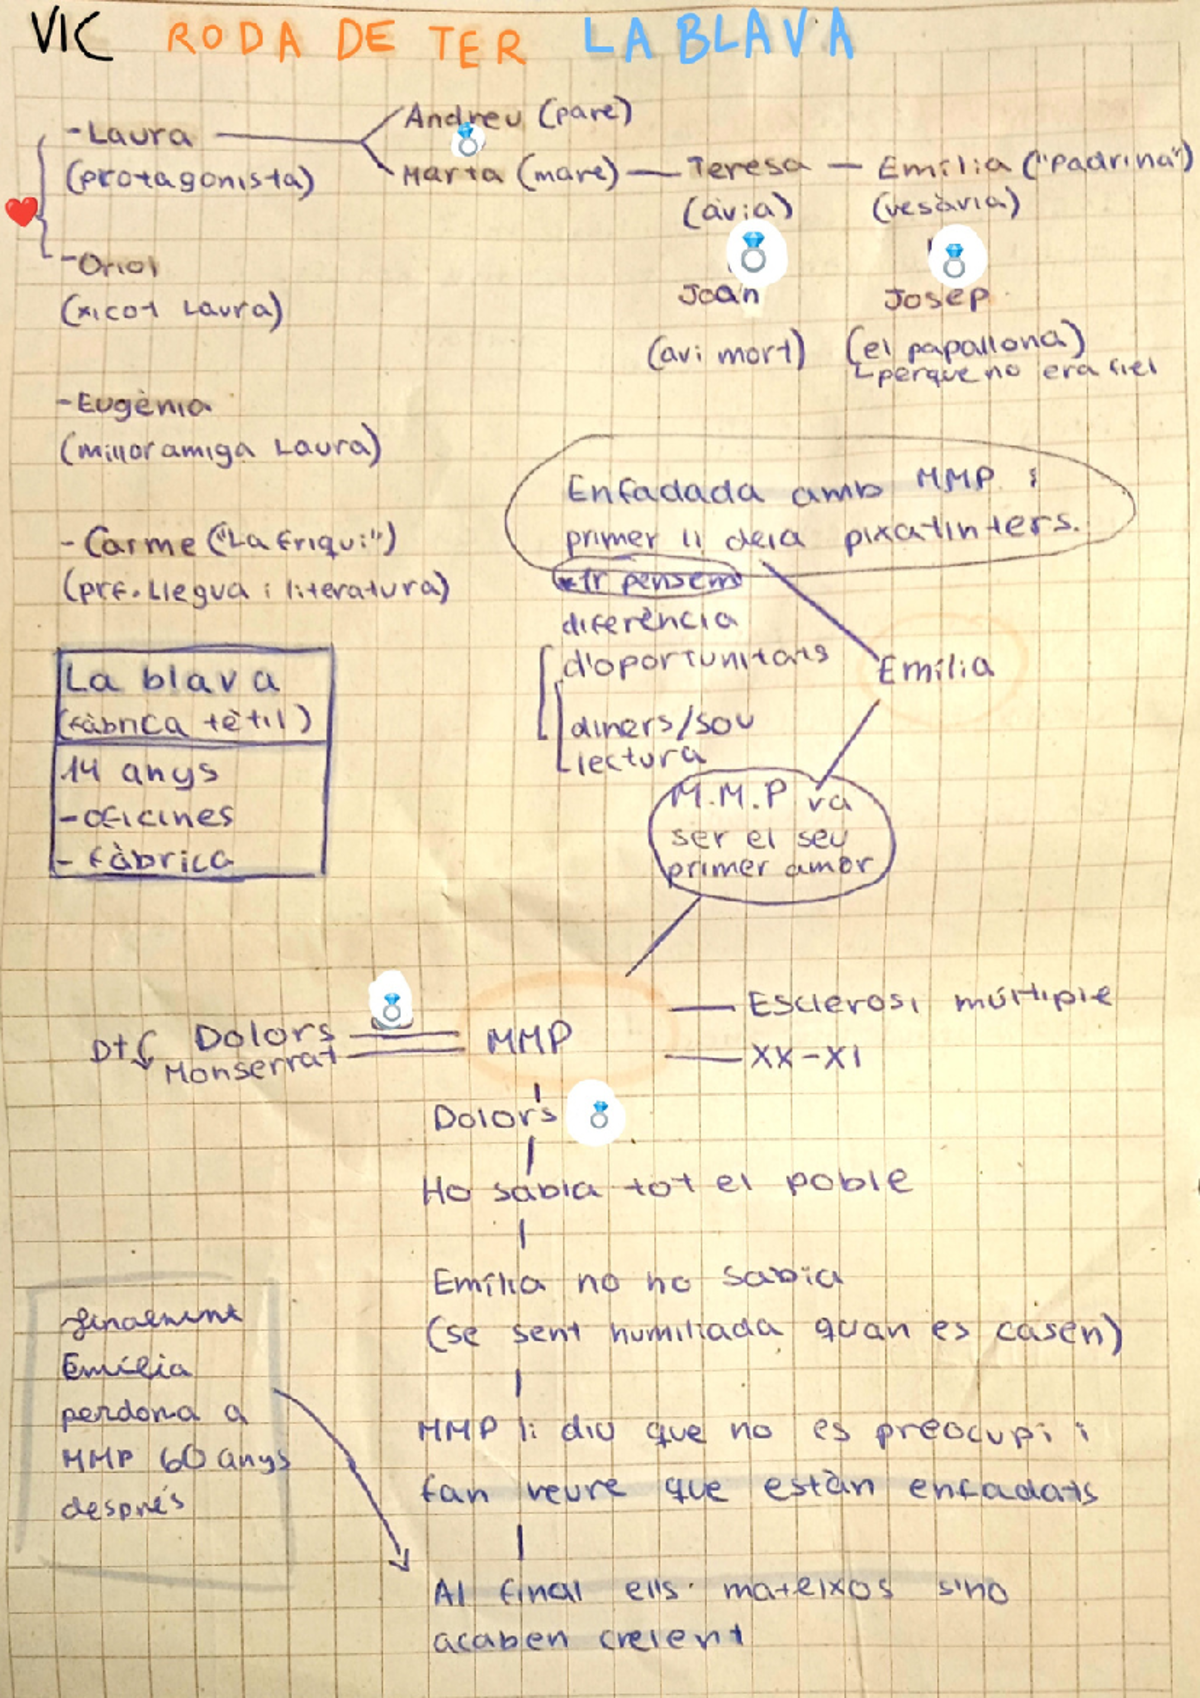 VIC RODA DE TER LA BLAVA
-Laura
(protagonista)
Andreu (pare)
Marta (mare) — Teresa — Emília ("Padrina")
(àvia)
(vesàvia)
-Oriol
(xicot Laura)
Joan
Josep
(avi mort)
(el papallona)
perque no era fiel
-Eugènia
(millor amiga Laura)
Enfadada amb MMP i
primer li deia pixatinters.
- Carme ("La friqui")
(prf. Llegua i literatura)
diferència
d'oportunitats
diners/sou
lectura
Emília
La blava
(fàbrica tètil)
14 anys
-oficines
- fàbrica
M.M.P va
ser el seu
primer amor
Dolors
Monserrat
MMP
Esclerosi múltiple
XX-XI
Dolors
Ho sabia tot el poble
Emília no ho sabia
(se sent humiliada quan es casen)
MMP li diu que no es preocupi i
fan veure que estàn enfadats
Al final ells mateixos s'ho
acaben creient
finalment
Emília
perdona a
MMP 60 anys
després